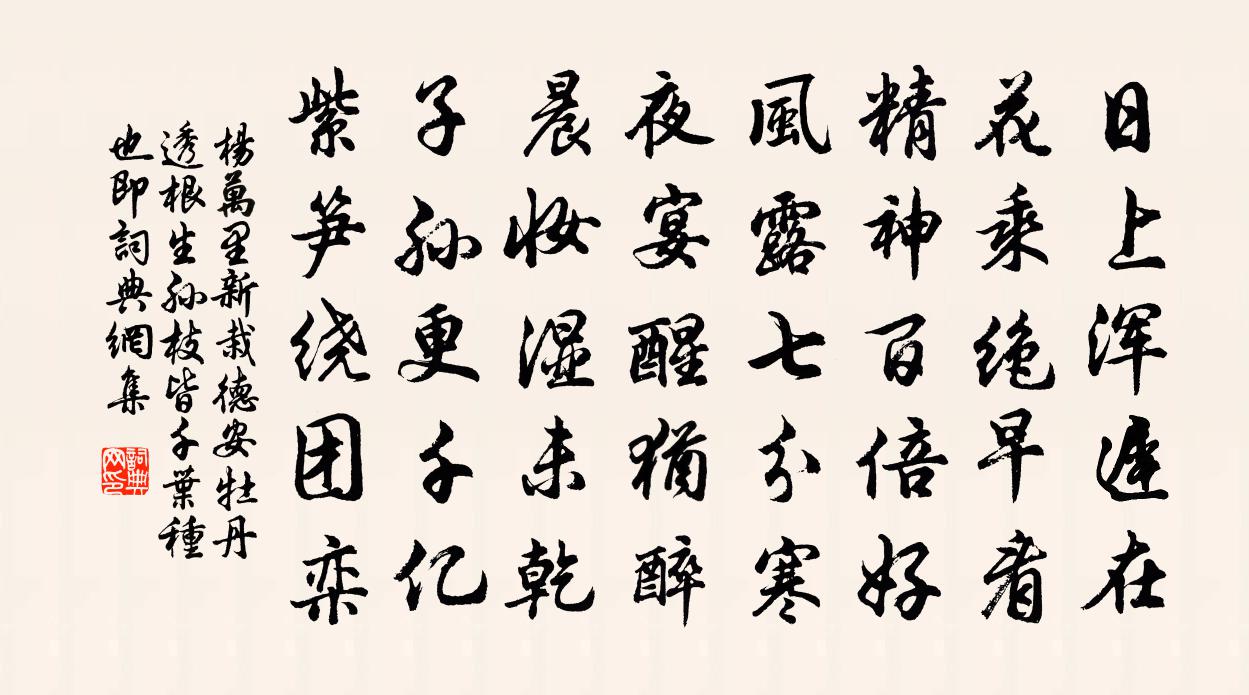 日上浑遅在
花乘绝早看
精神百倍好
風露七分寒
夜宴醒猶醉
晨妆湿未乾
子孙更千亿
紫笋绕团栾
楊萬里新栽德安牡丹
透根生孙枝皆千葉種
也即詞典網集
詞典
网印